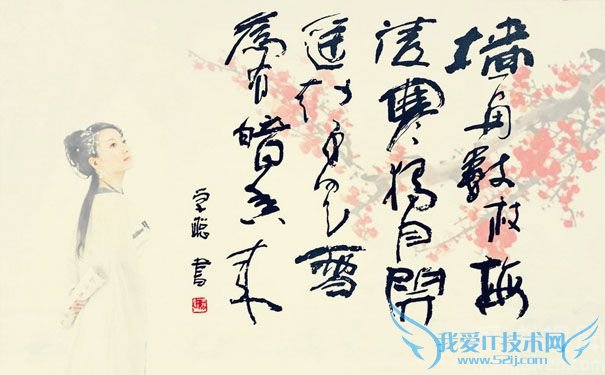 墙角數枝梅
凌寒獨自開
遥知不是雪
為有暗香来
学聪 書
我爱IT技术网
www.52ij.com